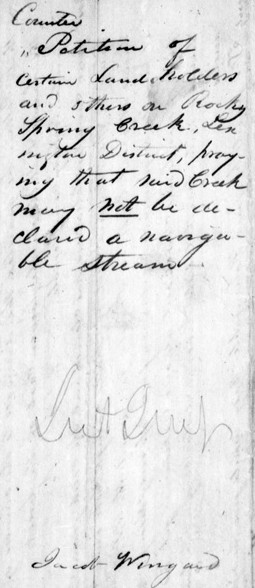 Counter
„Petition of
certain Land holders
and others on Rocky
Spring Creek, Lex
ington District, pray-
ing that said Creek
may not be de-
clared a naviga-
ble stream
Jacob Wingard